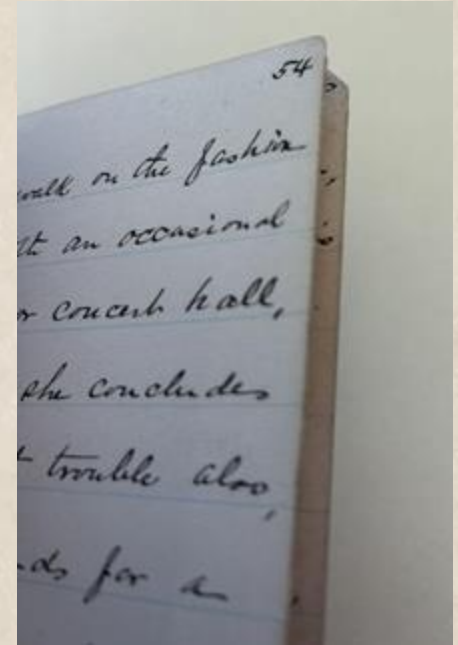 54
walk on the fashion
an occasional
or concert hall,
she concludes
trouble also,
for a